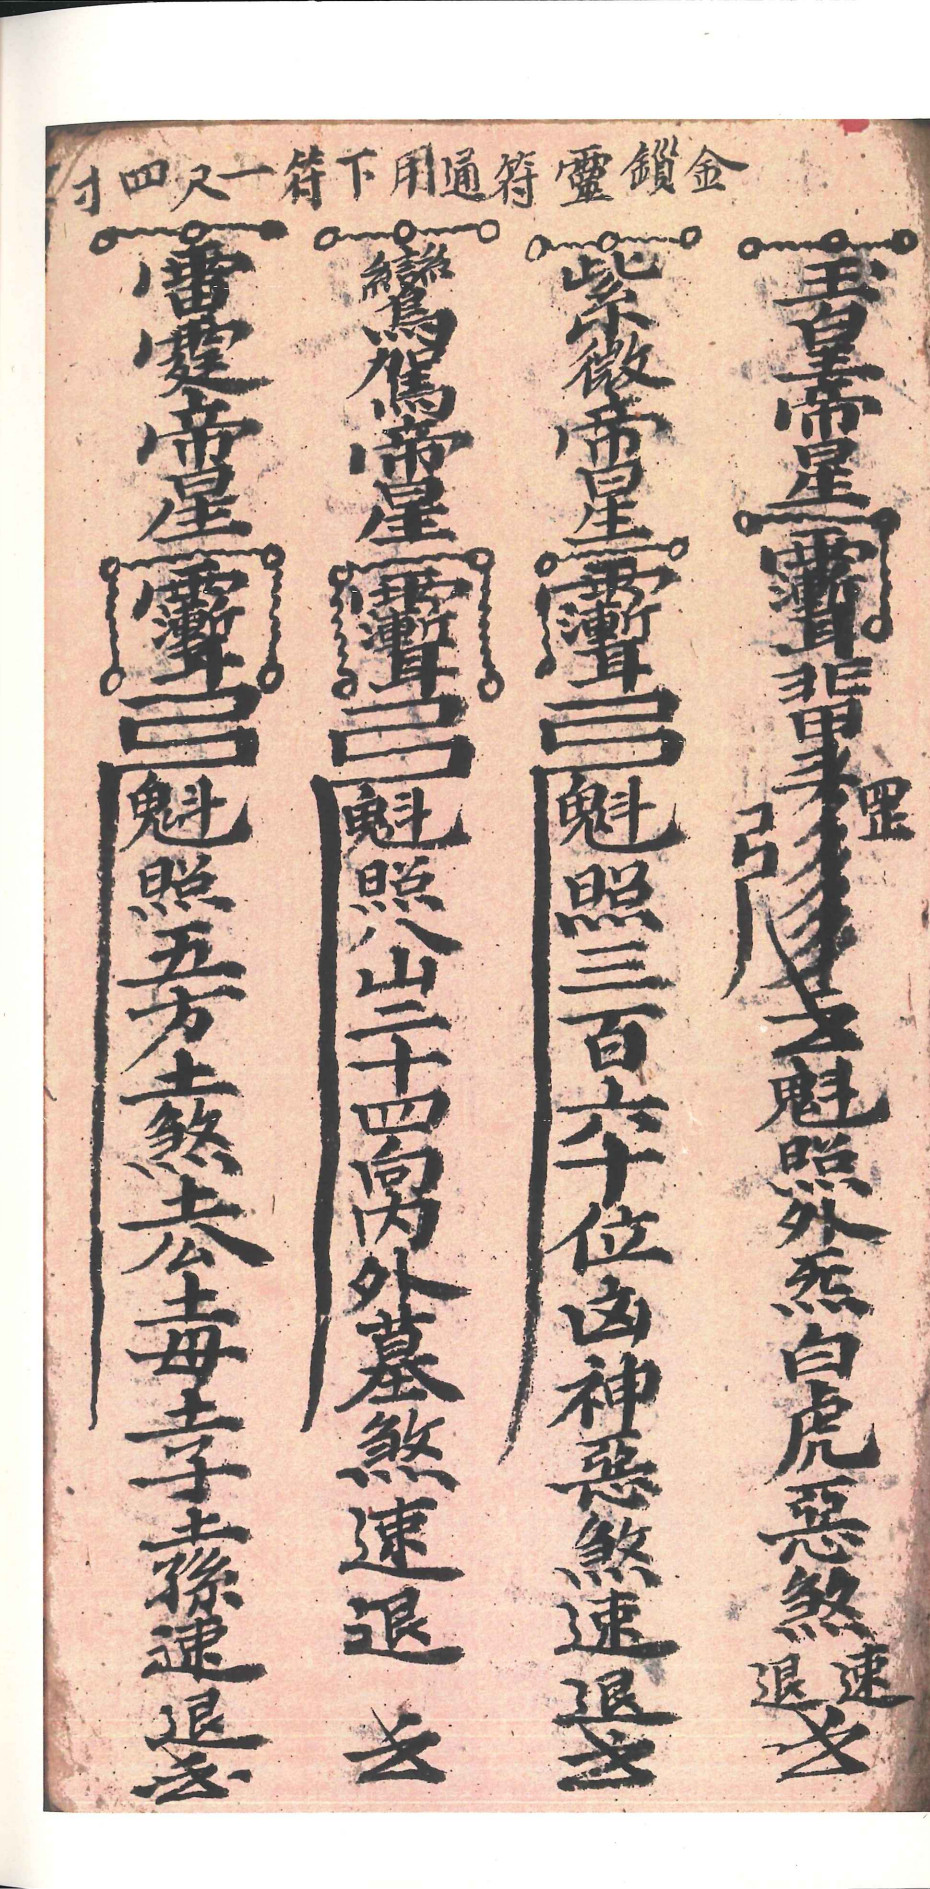 金鎖靈符通用下符一尺四寸
玉皇帝星 罡 魁照外炁白虎惡煞速退
紫微帝星 魁照三百六十位凶神惡煞速退
鸞駕帝星 魁照八山二十四向內外墓煞速退
雷霆帝星 魁照五方土煞土公土母土子土孫速退